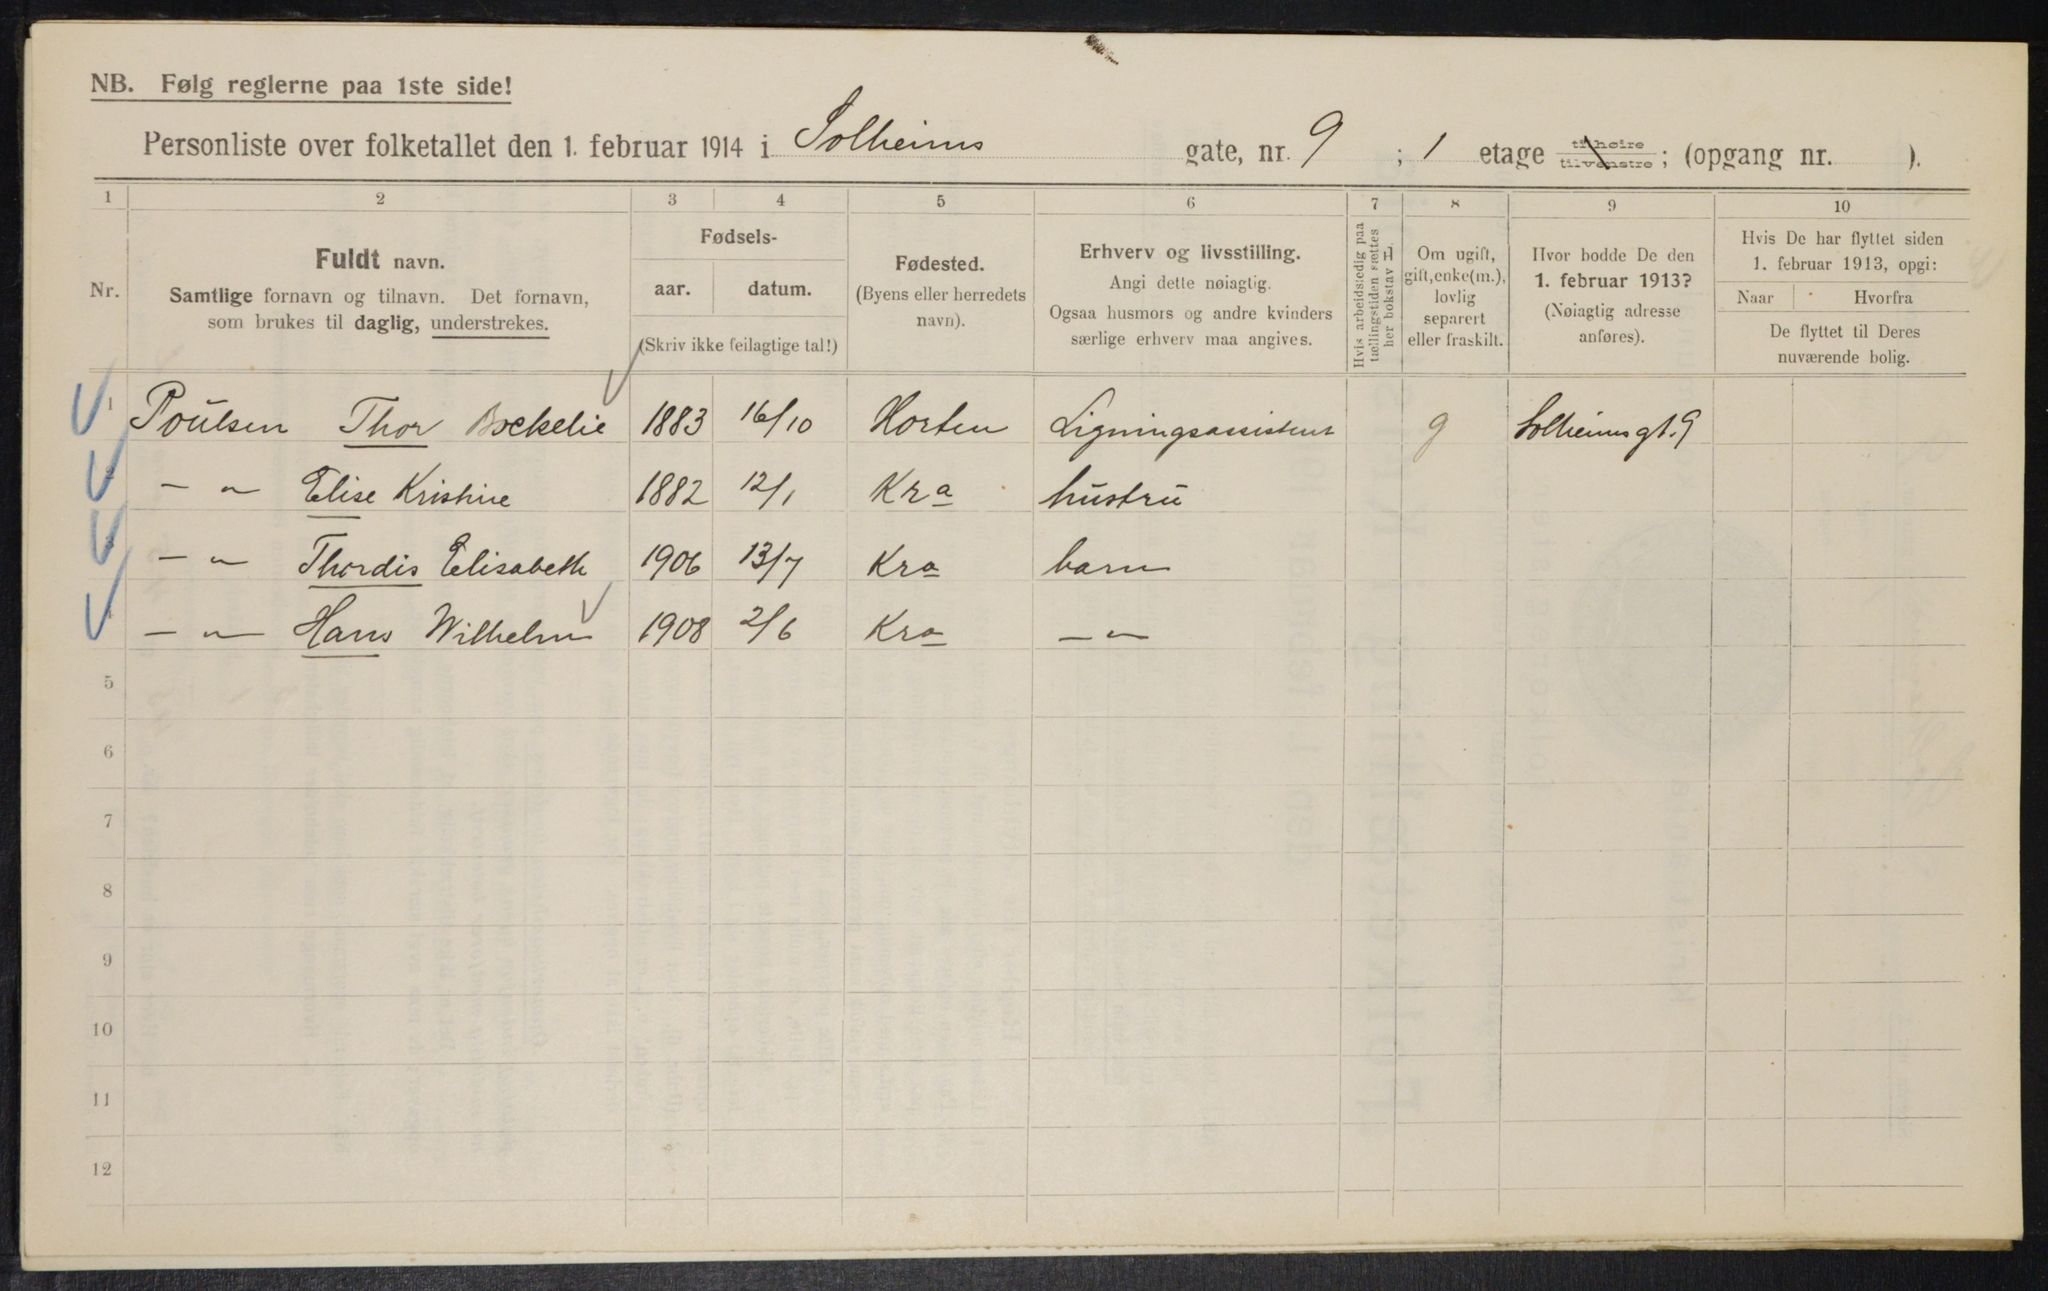 NB. Følg reglerne paa 1ste side!
Personliste over folketallet den 1. februar 1914 i Solheims gate, nr. 9 ; 1 etage tilhøire tilvenstre ; (opgang nr. ).
1 2 3 4 5 6 7 8 9 10
Nr.
Fuldt navn.
Samtlige fornavn og tilnavn. Det fornavn,
som brukes til daglig, understrekes.
Fødsels-
aar. datum.
(Skriv ikke feilagtige tal!)
Fødested.
(Byens eller herredets
navn).
Erhverv og livsstilling.
Angi dette nøiagtig.
Ogsaa husmors og andre kvinders
særlige erhverv maa angives.
Hvis arbeidsledig paa
tællingstiden sættes
her bokstav L
Om ugift,
gift, enke(m.),
lovlig
separert
eller fraskilt.
Hvor bodde De den
1. februar 1913?
(Nøiagtig adresse
anføres).
Hvis De har flyttet siden
1. februar 1913, opgi:
Naar Hvorfra
De flyttet til Deres
nuværende bolig.
1 Poulsen Thor 1883 16/10 Horten Ligningsassistent g Solheimsgt. 9
2 — „ — Elise Kristine 1882 12/1 Kra hustru
3 — „ — Thordis Elisabeth 1906 13/7 Kra barn
4 — „ — Hans Wilhelm 1908 2/6 Kra — „ —
5
6
7
8
9
10
11
12